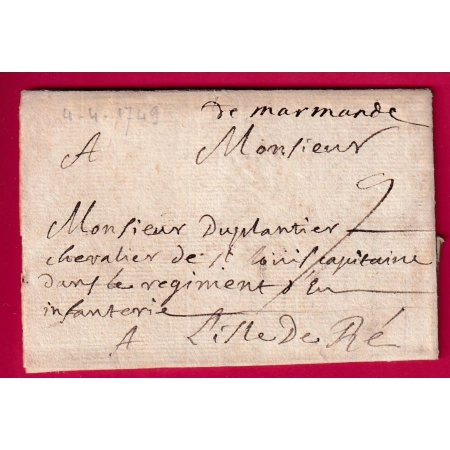 4-4-1749
de marmande
A Monsieur
9
Monsieur Duplantier
chevalier de st louis capitaine
dans le regiment d'Eu
infanterie
A Lisle De Ré